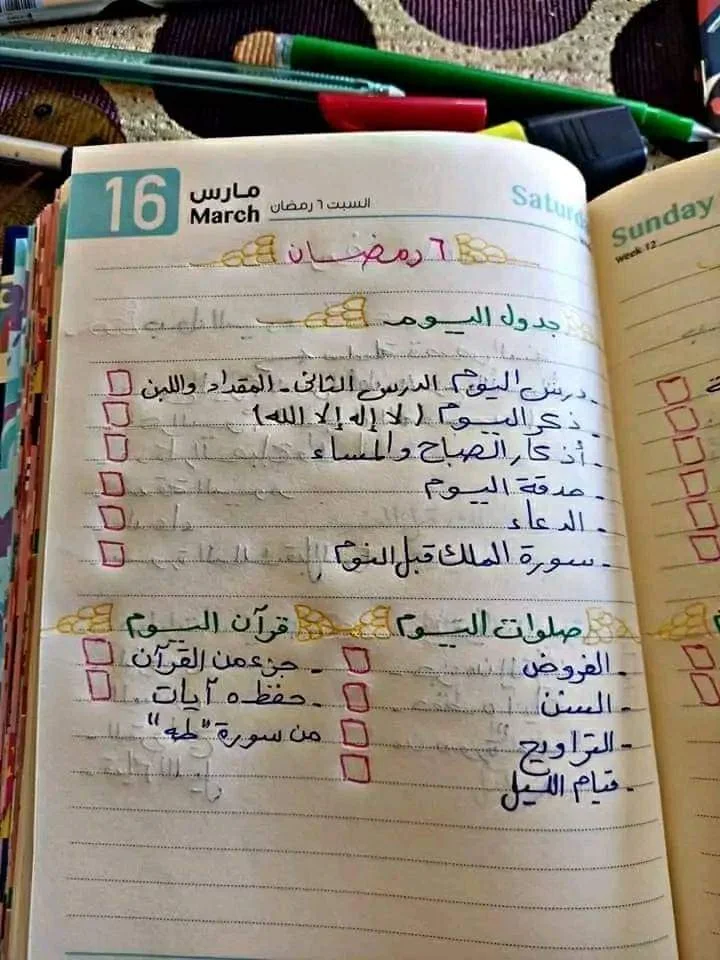 16
مارس
March
السبت ٦ رمضان
Saturd
٦ رمضان
جدول اليوم
- درس اليوم الدرس الثانى - المقداد واللبن
- ذكر اليوم (لا إله إلا الله)
- أذكار الصباح والمساء
- صدقة اليوم
- الدعاء
- سورة الملك قبل النوم
صلوات اليوم
- الفروض
- السنن
- التراويح
- قيام الليل
قرآن اليوم
- جزء من القرآن
- حفظ ٥ آيات
من سورة "طه"
Sunday
Week 12